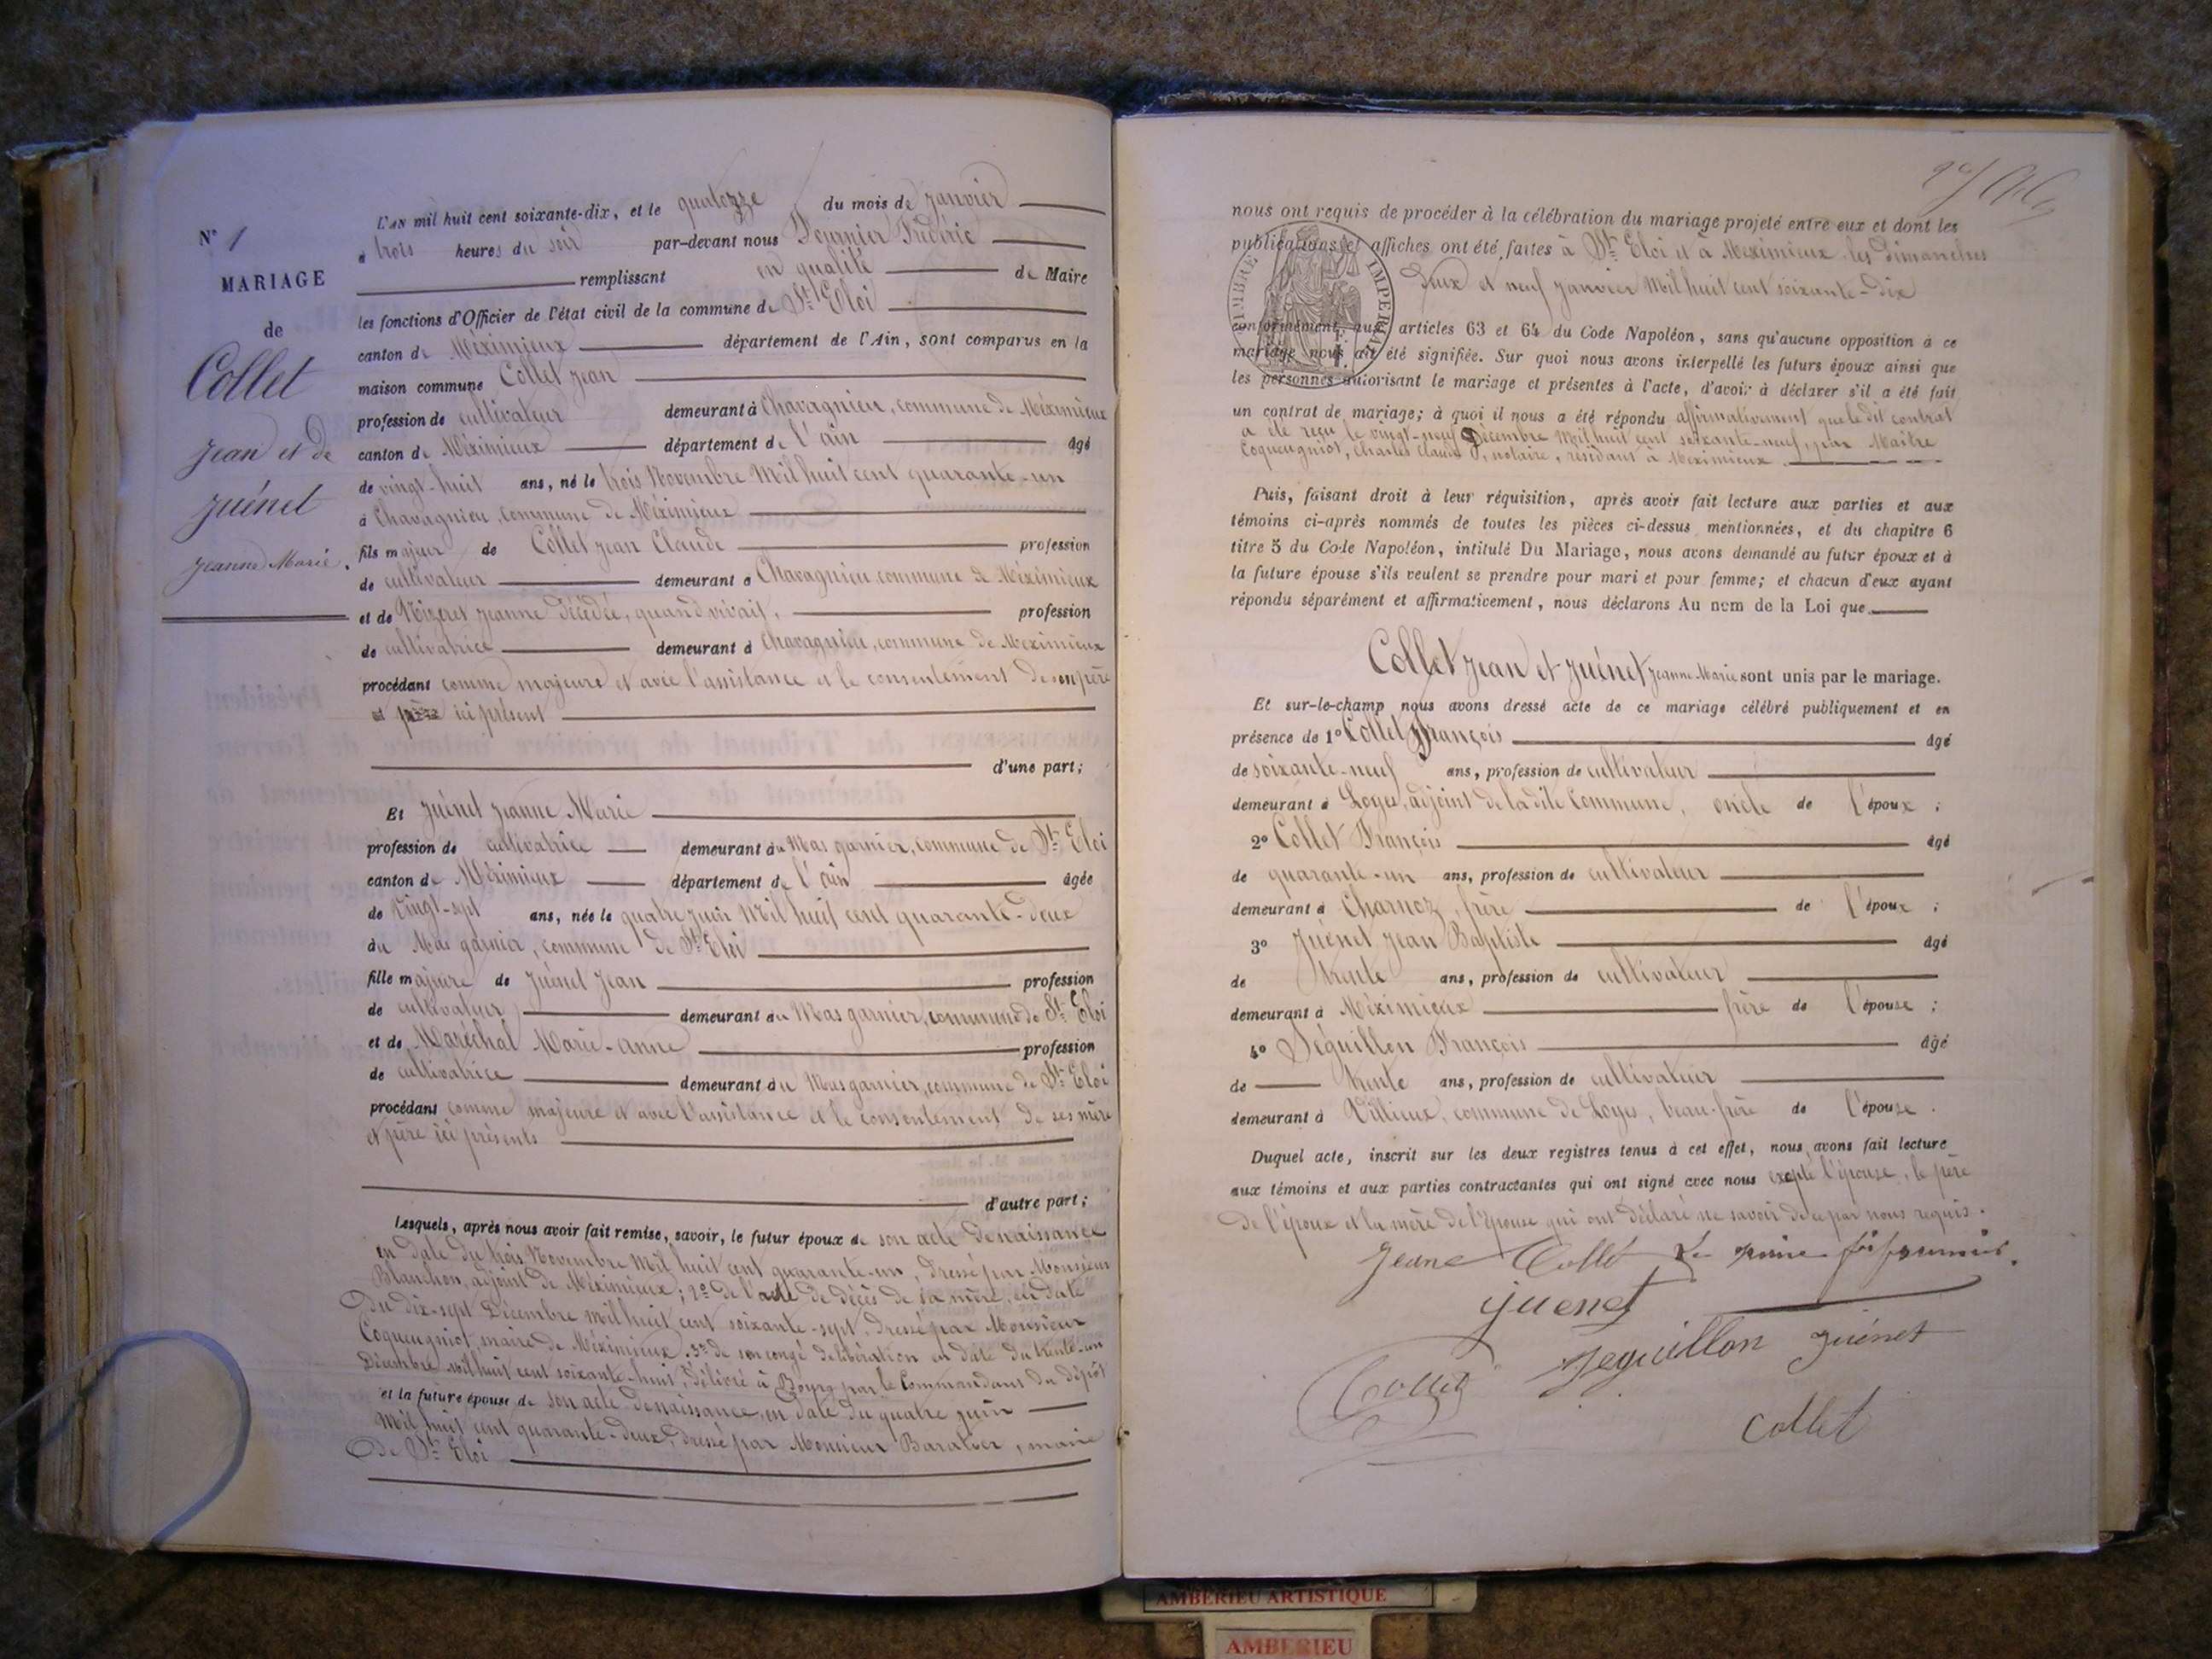 N° 1
MARIAGE
de
Collet
Jean et de
Juénet
Jeanne Marie.
L'AN mil huit cent soixante-dix, et le quatorze du mois de Janvier
à trois heures du soir par-devant nous Fournier Frédéric
remplissant en qualité de Maire
les fonctions d'Officier de l'état civil de la commune de St Eloi
canton de Méximieux département de l'Ain, sont comparus en la
maison commune Collet Jean
profession de cultivateur demeurant à Chavagnieu, commune de Méximieux
canton de Méximieux département de l'ain âgé
de vingt-huit ans, né le trois Novembre Mil huit cent quarante-un
à Chavagnieu, commune de Méximieux
fils majeur de Collet Jean Claude profession
de cultivateur demeurant à Chavagnieu commune de Méximieux
et de Nizeret Jeanne décédée, quand vivait, profession
de cultivatrice demeurant à Chavagnieu, commune de Meximieux
procédant comme majeure et avec l'assistance et le consentement de son père
ici présent
d'une part;
Et Juénet Jeanne Marie
profession de cultivatrice demeurant au Mas garnier, commune de St Eloi
canton de Méximieux département de l'ain âgée
de vingt-sept ans, née le quatre juin Mil huit cent quarante-deux
du Mas garnier, commune de St Eloi
fille majeure de Juénet Jean profession
de cultivateur demeurant au Mas garnier, commune de St Eloi
et de Maréchal Marie-anne profession
de cultivatrice demeurant au Mas garnier, commune de St Eloi
procédant comme majeure et avec l'assistance et le consentement de ses mère
et père ici présents
d'autre part;
Lesquels, après nous avoir fait remise, savoir, le futur époux de son acte de naissance
en date du trois Novembre Mil huit cent quarante-un, dressé par Monsieur
Blanchon, adjoint de Méximieux; 2° de l'acte de décès de sa mère, en date
du dix-sept Décembre mil huit cent soixante-sept, dressé par Monsieur
Coqueugniot, maire de Méximieux. 3° de son congé de libération en date du trente-un
Décembre mil huit cent soixante-huit, délivré à Bourg par le Commandant du dépôt
et la future épouse de son acte de naissance, en date du quatre juin
Mil huit cent quarante-deux, dressé par Monsieur Baratier, maire
de St Eloi
nous ont requis de procéder à la célébration du mariage projeté entre eux et dont les
publications et affiches ont été faites à St Eloi et à Meximieux, les dimanches
deux et neuf janvier Mil huit cent soixante-dix
TIMBRE IMPERIAL
conformément aux articles 63 et 64 du Code Napoléon, sans qu'aucune opposition à ce
mariage nous ait été signifiée. Sur quoi nous avons interpellé les futurs époux ainsi que
les personnes autorisant le mariage et présentes à l'acte, d'avoir à déclarer s'il a été fait
un contrat de mariage; à quoi il nous a été répondu affirmativement que le dit contrat
a été reçu le vingt-neuf Décembre Mil huit cent soixante-neuf, par Maître
Coqueugniot, Charles Claude, notaire, résidant à Meximieux.
Puis, faisant droit à leur réquisition, après avoir fait lecture aux parties et aux
témoins ci-après nommés de toutes les pièces ci-dessus mentionnées, et du chapitre 6
titre 5 du Code Napoléon, intitulé Du Mariage, nous avons demandé au futur époux et à
la future épouse s'ils veulent se prendre pour mari et pour femme; et chacun d'eux ayant
répondu séparément et affirmativement, nous déclarons Au nom de la Loi que
Collet Jean et Juénet Jeanne-Marie sont unis par le mariage.
Et sur-le-champ nous avons dressé acte de ce mariage célébré publiquement et en
présence de 1° Collet François âgé
de soixante-neuf ans, profession de cultivateur
demeurant à Loyes, adjoint de la dite Commune, oncle de l'époux;
2° Collet François âgé
de quarante-un ans, profession de cultivateur
demeurant à Charnoz, frère de l'époux;
3° Juénet Jean Baptiste âgé
de trente ans, profession de cultivateur
demeurant à Méximieux frère de l'épouse;
4° Séguillon François âgé
de trente ans, profession de cultivateur
demeurant à Villieux, commune de Loyes, beau-frère de l'épouse.
Duquel acte, inscrit sur les deux registres tenus à cet effet, nous avons fait lecture
aux témoins et aux parties contractantes qui ont signé avec nous excepté l'épouse, le père
de l'époux et la mère de l'épouse qui ont déclaré ne savoir de ce par nous requis.
Jeane Collet
juenet
Seguillon Juénet
Collet
Collet
AMBERIEU ARTISTIQUE
AMBERIEU